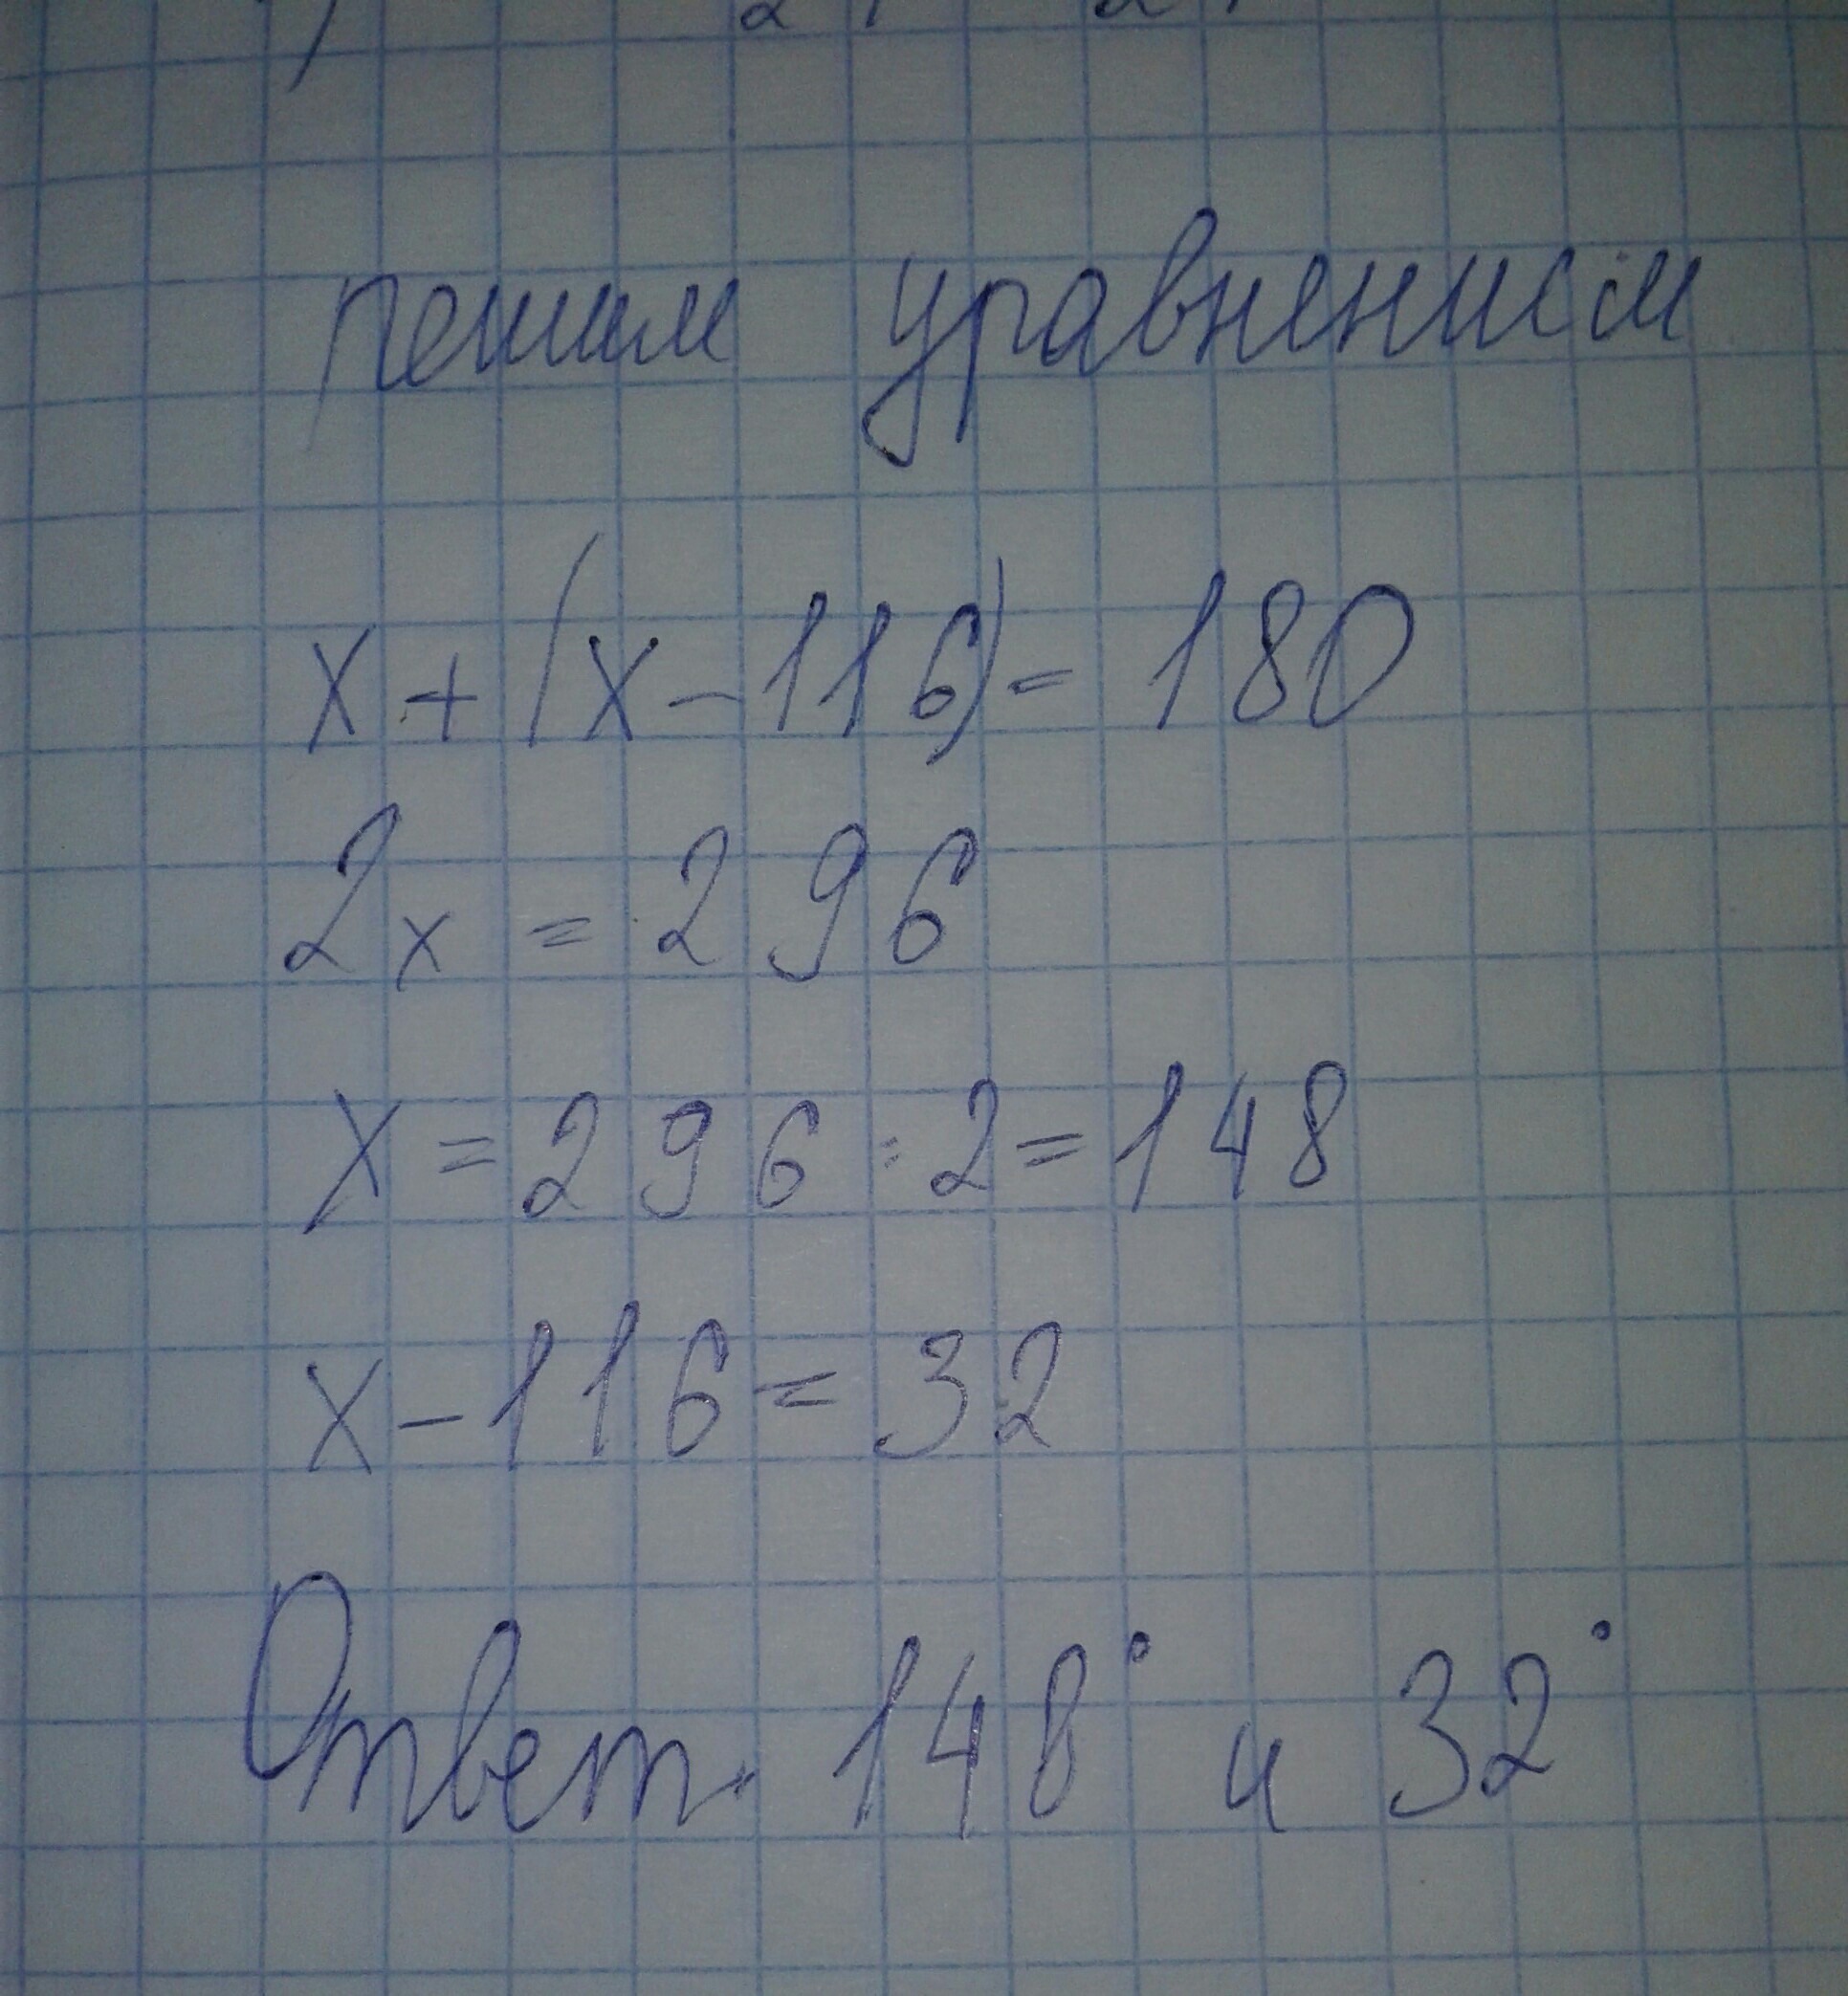 решим уравнением
x + (x - 116) = 180
2x = 296
x = 296 : 2 = 148
x - 116 = 32
Ответ: 148° и 32°